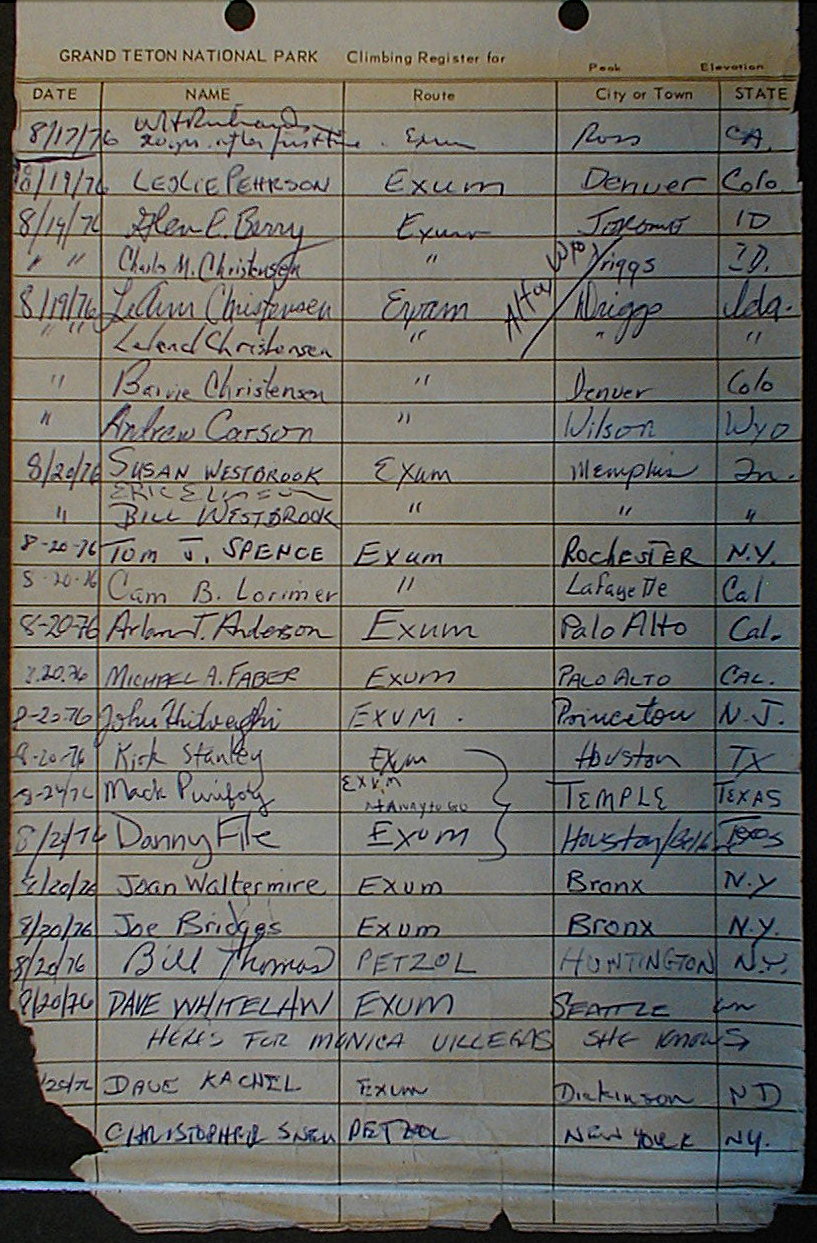 GRAND TETON NATIONAL PARK Climbing Register for
Peak Elevation
DATE NAME Route City or Town STATE
8/17/76 20 yrs. after first time. Exum Ross CA.
8/19/76 LESLIE PEHRSON Exum Denver Colo.
8/19/76 Glen E. Berry Exum ID
" " Charles M. Christensen " Driggs ID.
Alta, Wyo
8/19/76 LeAnn Christensen Exum Driggs Ida.
" " Leland Christensen " " "
" Barrie Christensen " Denver Colo
" Andrew Carson " Wilson Wyo
8/20/76 SUSAN WESTBROOK Exum Memphis Tn.
ERIC
" BILL WESTBROOK " " "
8-20-76 TOM J. SPENCE Exum ROCHESTER N.Y.
8-20-76 Cam B. Lorimer " Lafayette Cal
8-20-76 Arlan T. Anderson Exum Palo Alto Cal.
8.20.76 MICHAEL A. FABER EXUM PALO ALTO CAL.
8-20-76 John EXUM. Princeton N.J.
8-20-76 Kirk Stanley Exum Houston TX
Mack Purifoy EXUM TEMPLE TEXAS
THE WAY TO GO
Danny File EXUM Houston Texas
8/20/76 Joan Waltermire Exum Bronx N.Y
8/20/76 Joe Bridges Exum Bronx N.Y.
8/20/76 Bill Thomas PETZOL HUNTINGTON N.Y.
8/20/76 DAVE WHITELAW EXUM SEATTLE wn
HERE'S FOR MONICA VILLEGAS SHE KNOWS
DAVE KACHEL EXUM Dickinson ND
CHRISTOPHER PETZOL NEW YORK NY.